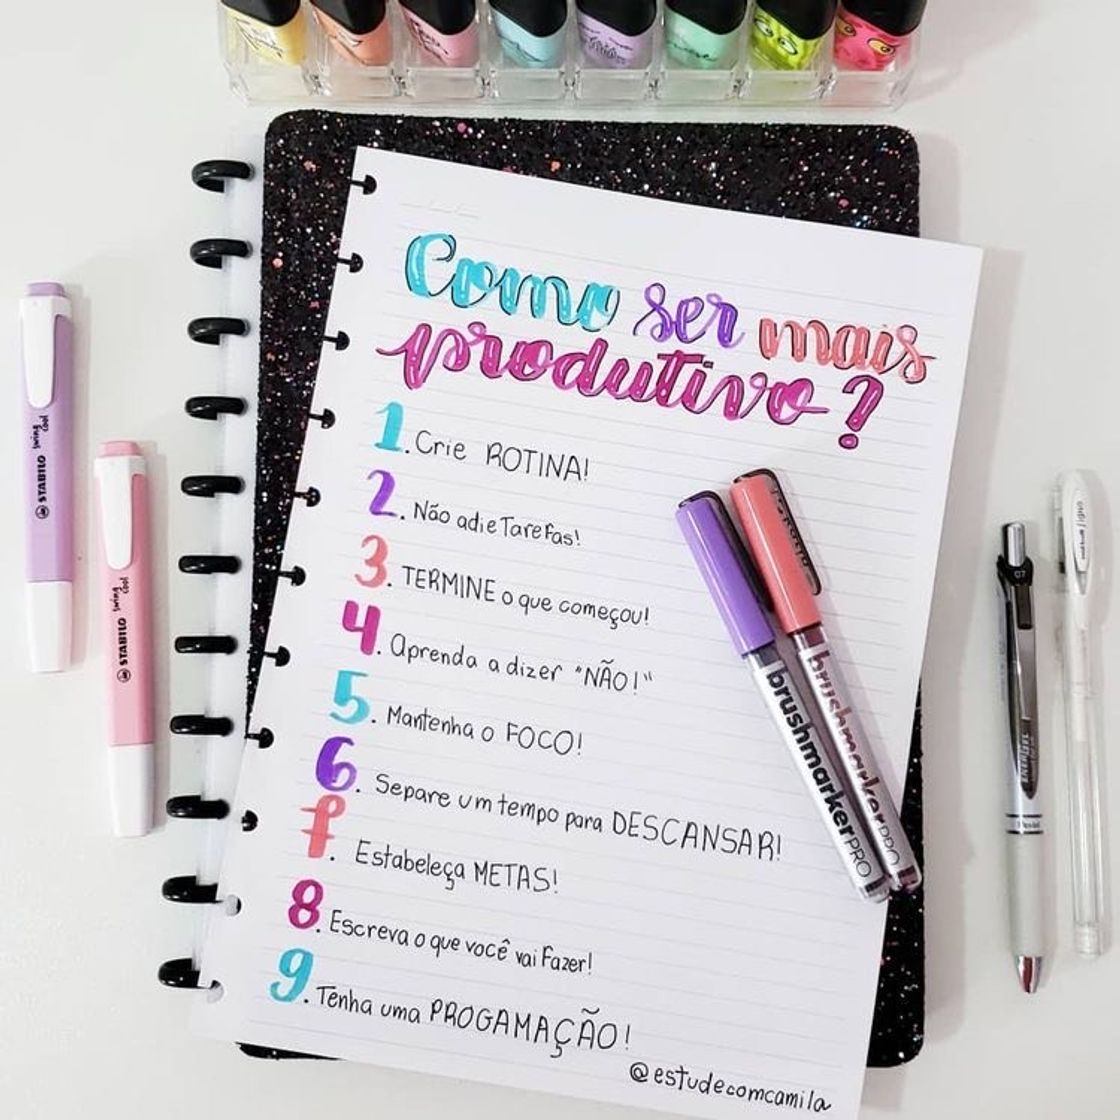 Como ser mais
produtivo?
1. Crie ROTINA!
2. Não adie TareFas!
3. TERMINE o que começou!
4. Aprenda a dizer "NÃO!"
5. Mantenha o FOCO!
6. Separe um tempo para DESCANSAR!
7. Estabeleça METAS!
8. Escreva o que você vai Fazer!
9. Tenha uma PROGAMAÇÃO!
@estudecomcamila
STABILO swing cool
STABILO swing cool
brushmarkerPRO
brushmarkerPRO